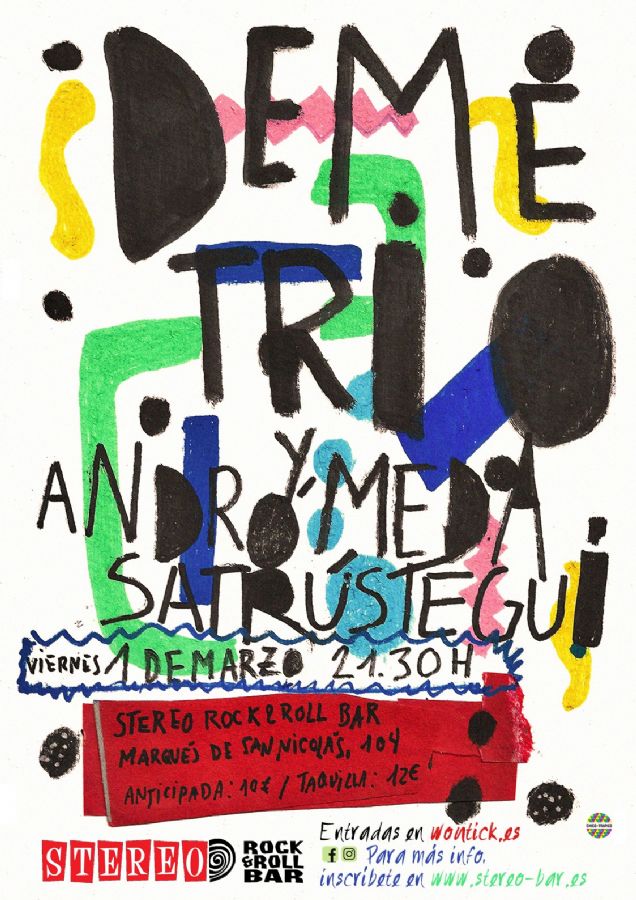 DEME
TRIO
Y
ANDRÓMEDA
SATRÚSTEGUI
VIERNES 1 DE MARZO 21.30H
STEREO ROCK & ROLL BAR
MARQUÉS DE SAN NICOLÁS, 104
ANTICIPADA: 10€ / TAQUILLA: 12€
STEREO ROCK & ROLL BAR
Entradas en wontick.es
Para más info,
inscríbete en www.stereo-bar.es